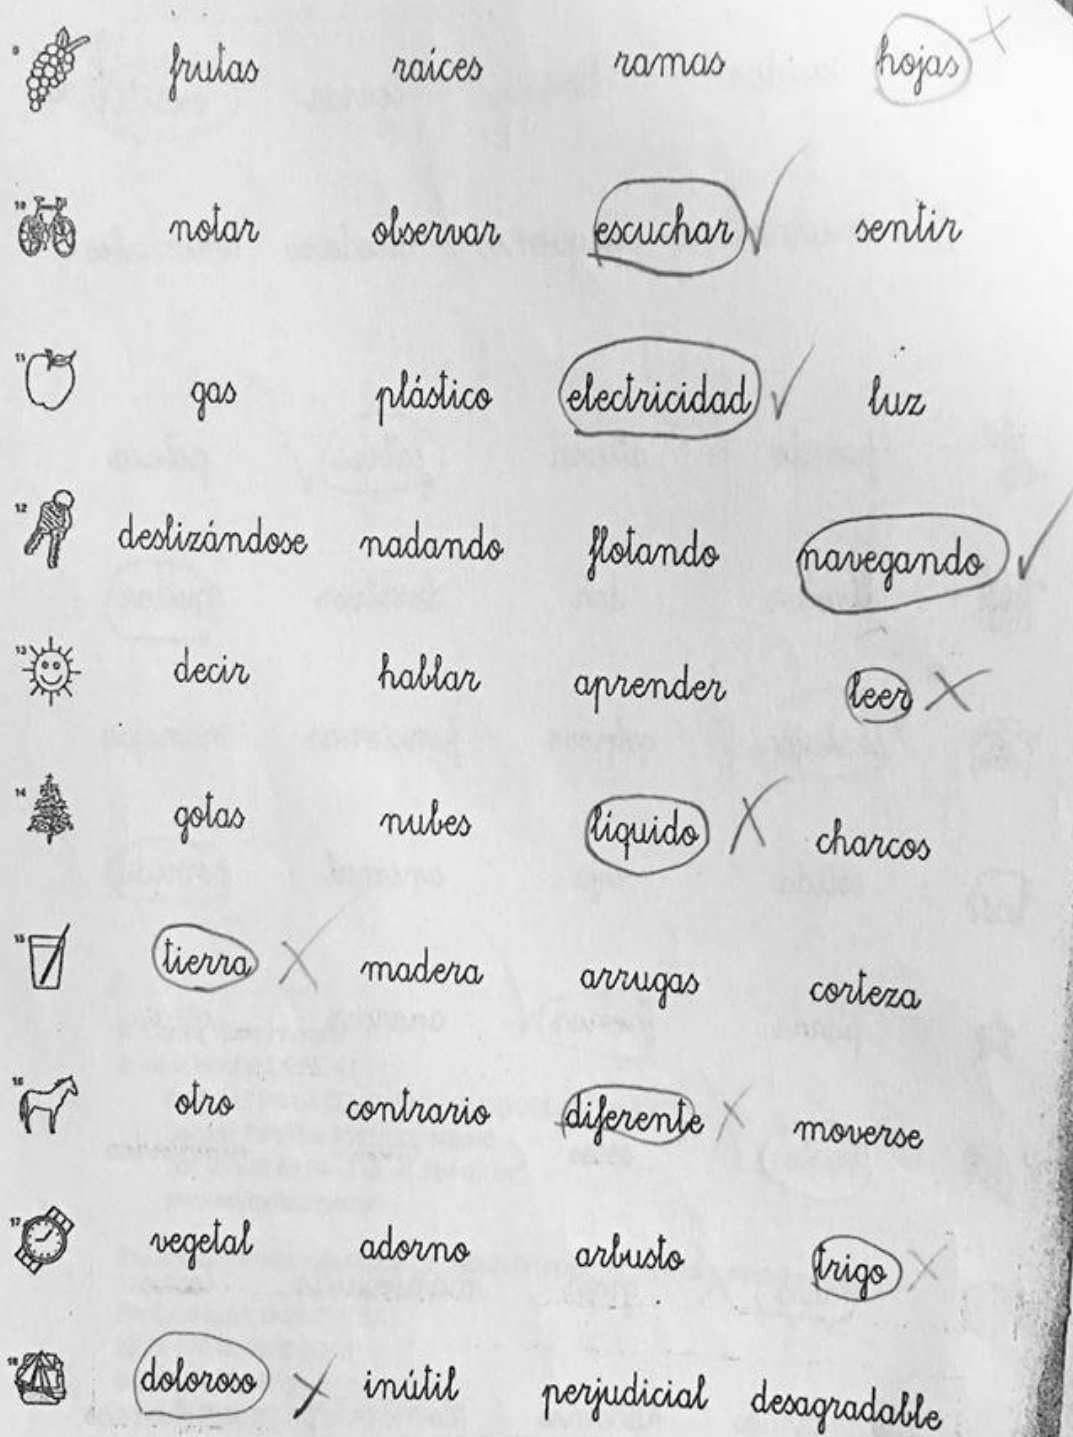 9 frutas raíces ramas hojas
10 notar observar escuchar sentir
11 gas plástico electricidad luz
12 deslizándose nadando flotando navegando
13 decir hablar aprender leer
14 gotas nubes líquido charcos
15 tierra madera arrugas corteza
16 otro contrario diferente moverse
17 vegetal adorno arbusto trigo
18 doloroso inútil perjudicial desagradable